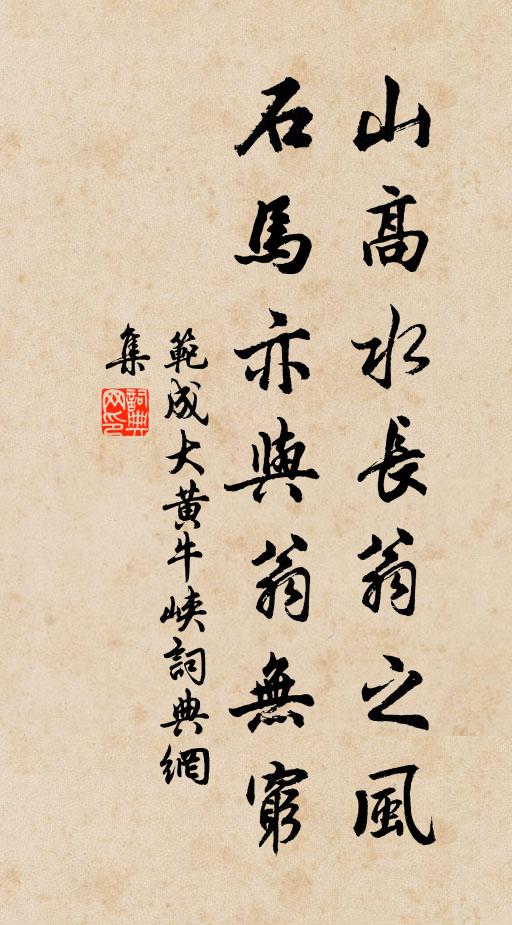 山高水長翁之風
石馬亦與翁無窮
範成大黃牛峽詞典網
集
詞典
网印